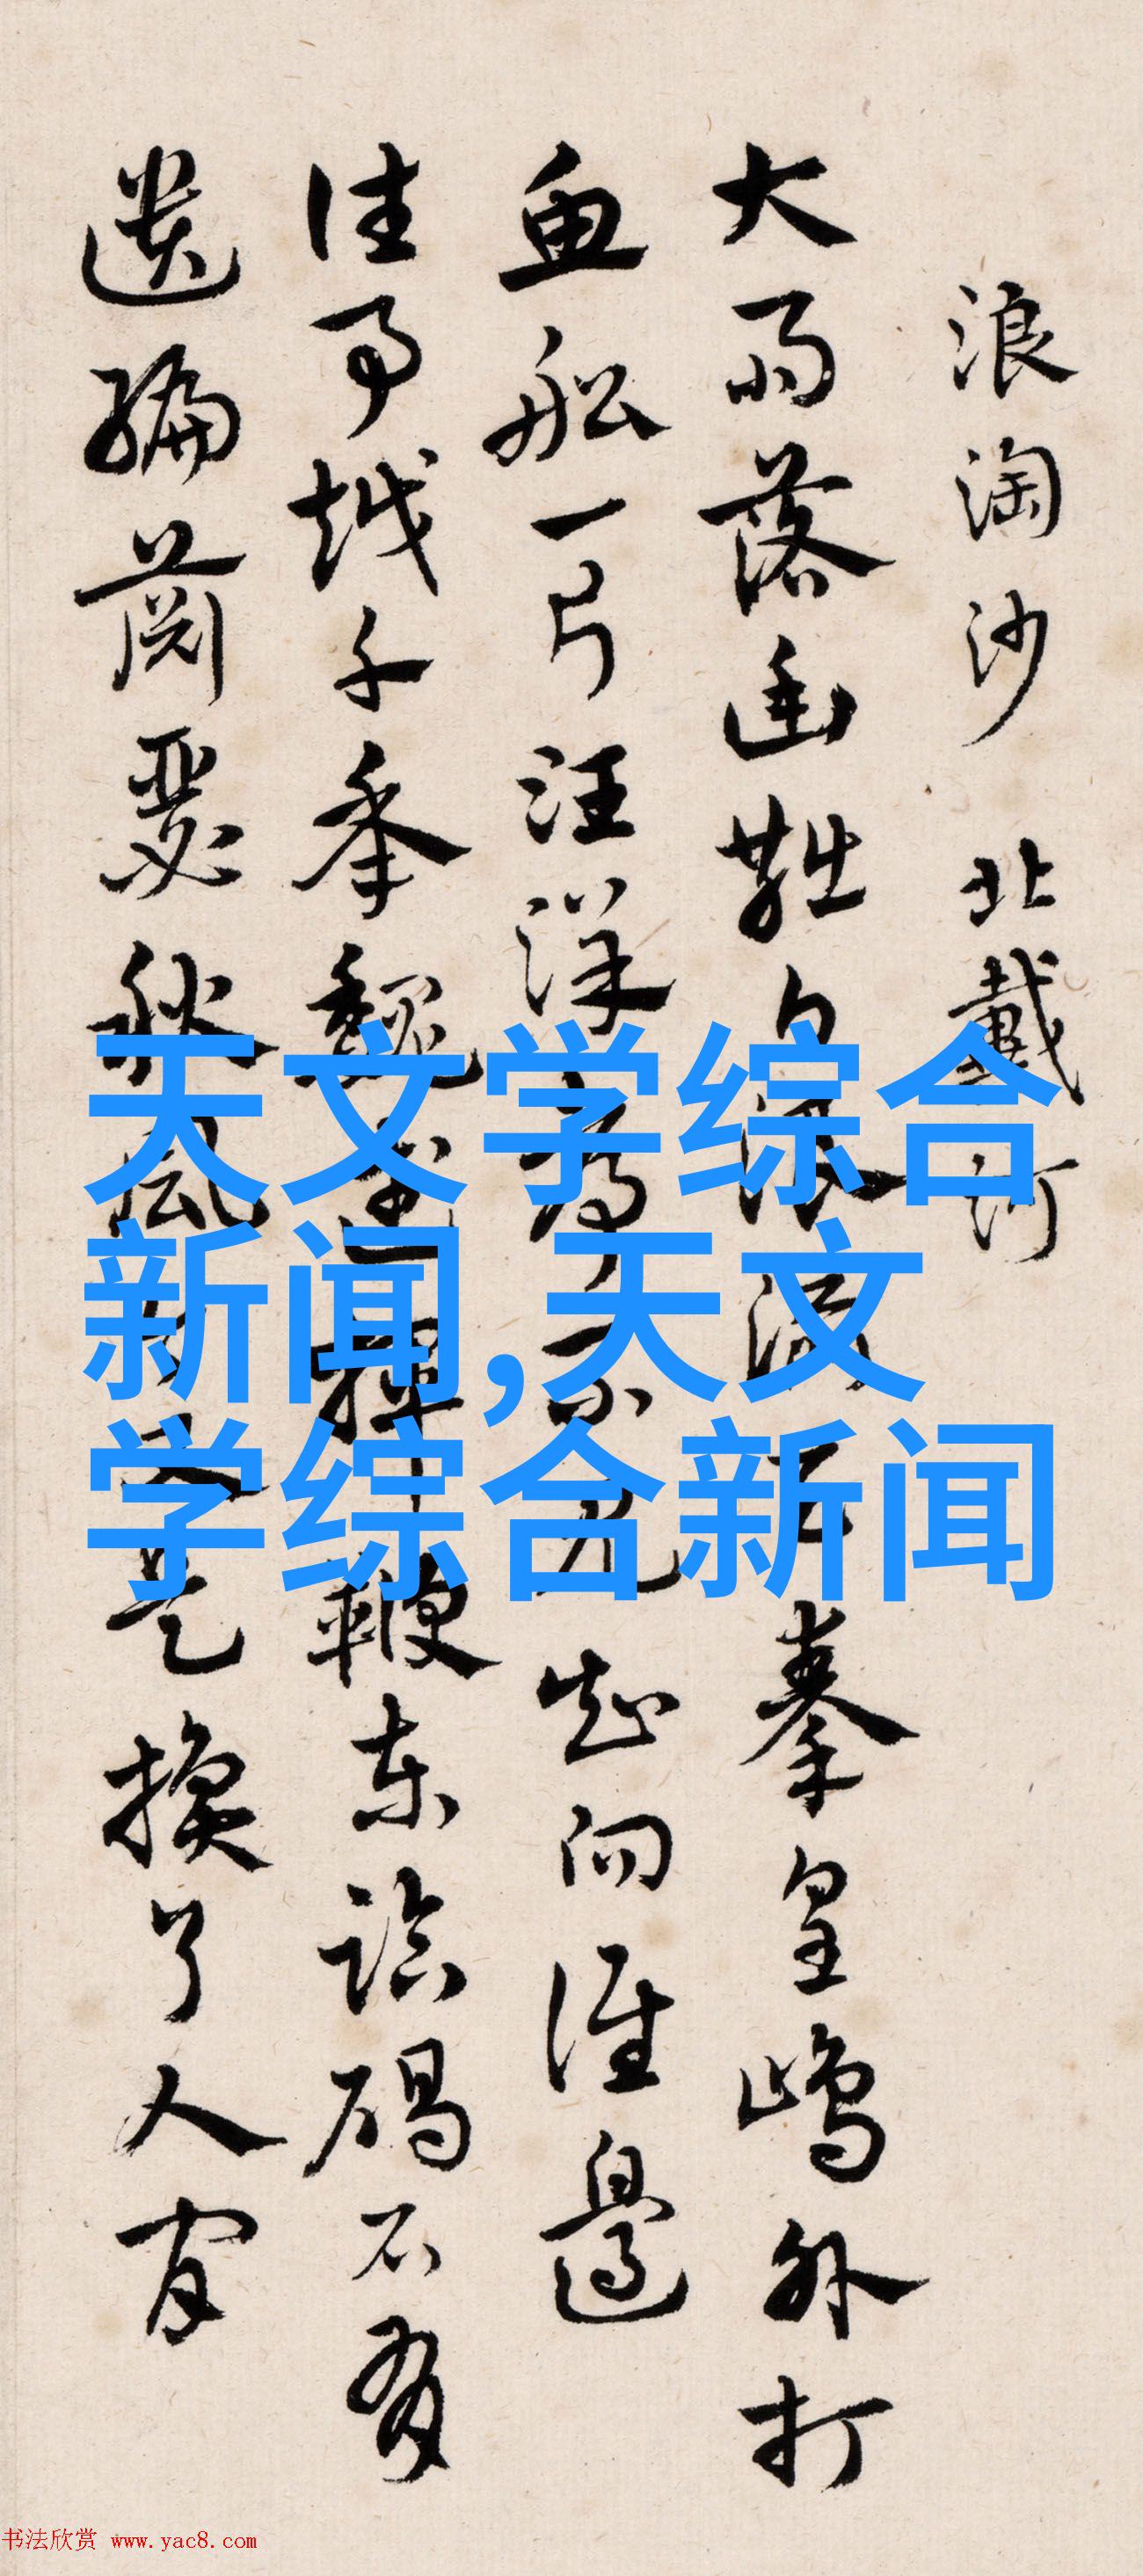 浪淘沙 北戴河
大雨落幽燕白浪滔天秦皇嶋外打
魚船一片汪洋都不見知向誰邊
往事越千秊魏武揮鞭東臨碣石有
遺編蕭瑟秋風今又是換了人間
天文学综合
新闻,天文
学综合新闻
书法欣赏 www.yac8.com